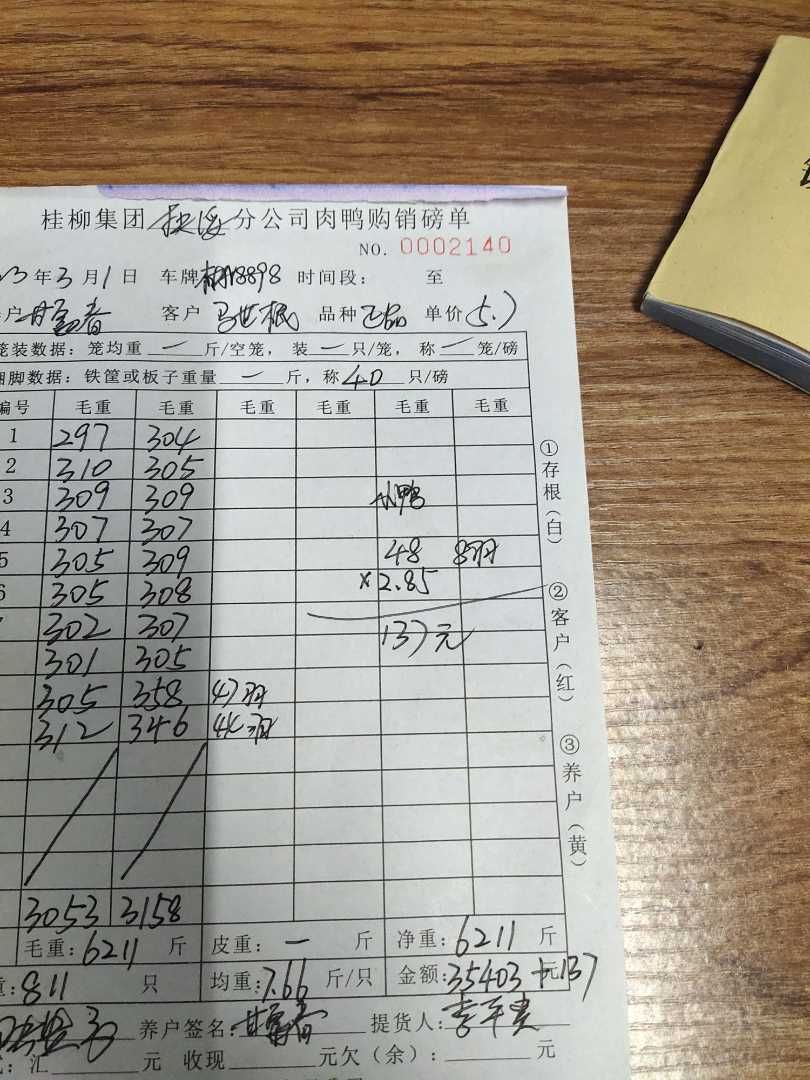 桂柳集团 分公司肉鸭购销磅单
NO. 0002140
23年3月1日 车牌 8898 时间段: 至
户 甘富春 客户 马世根 品种 正品 单价 5.7
笼装数据: 笼均重 一 斤/空笼, 装 一 只/笼, 称 一 笼/磅
捆脚数据: 铁筐或板子重量 一 斤, 称 40 只/磅
编号 毛重 毛重 毛重 毛重 毛重 毛重
1 297 304
2 310 305
3 309 309 小鸭
4 307 307
5 305 309 48 8羽
6 305 308 ×2.85
302 307 137元
301 305
305 358 47羽
312 346 44羽
3053 3158
毛重: 6211 斤 皮重: 一 斤 净重: 6211 斤
811 只 均重: 7.66 斤/只 金额: 35403 元 +137
养户签名: 甘富春 提货人:
汇 元 收现 元欠(余): 元
①存根(白)
②客户(红)
③养户(黄)